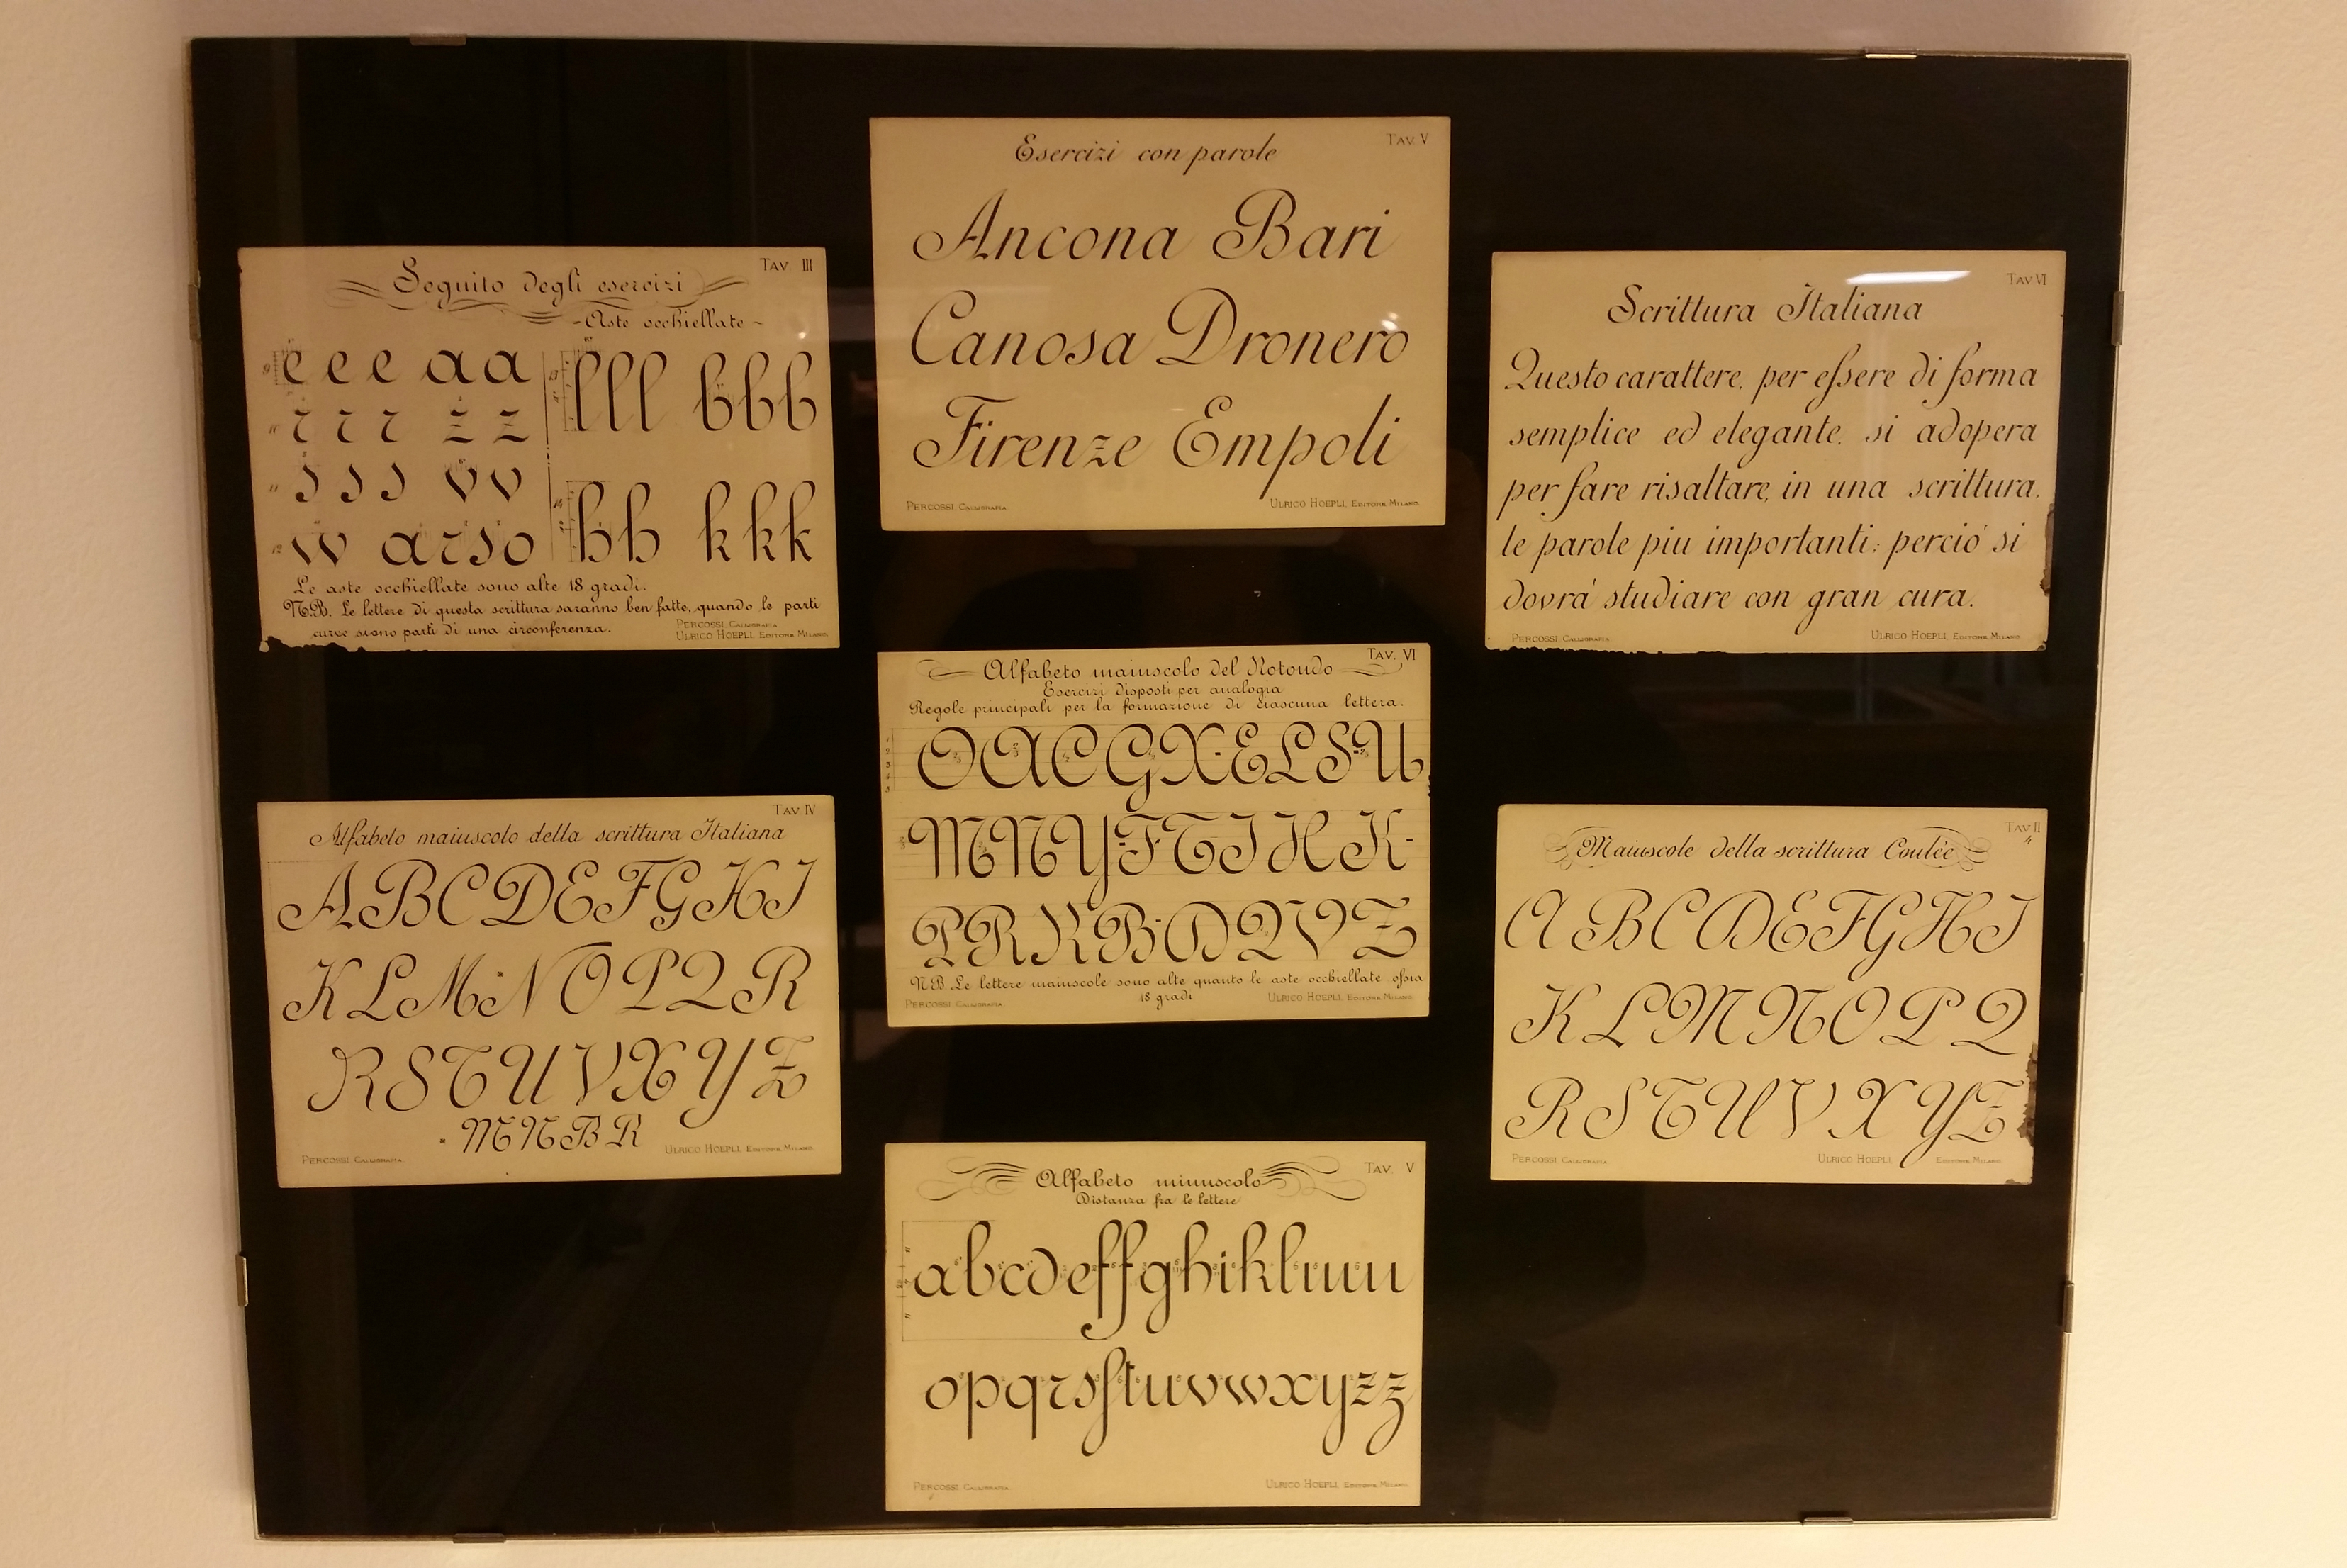 Tav III
Seguito degli esercizi
- Aste occhiellate -
9 e e e a a
r r r z z
s s s v v
12 w a r s o
13 l l l b b b
14 h h k k k
Le aste occhiellate sono alte 18 gradi.
N.B. Le lettere di questa scrittura saranno ben fatte, quando le parti
curve siano parti di una circonferenza.
Percossi, Calligrafia
Ulrico Hoepli, Editore, Milano.
Tav. V
Esercizi con parole
Ancona Bari
Canosa Dronero
Firenze Empoli
Percossi, Calligrafia.
Ulrico Hoepli, Editore, Milano.
Tav VI
Scrittura Italiana
Questo carattere, per eſsere di forma
semplice ed elegante, si adopera
per fare risaltare, in una scrittura,
le parole piu importanti: perciò si
dovrà studiare con gran cura.
Percossi, Calligrafia
Ulrico Hoepli, Editore, Milano
Tav IV
Alfabeto maiuscolo della scrittura Italiana
A B C D E F G H I
K L M N O P Q R
R S T U V X Y Z
M N B R
Percossi, Calligrafia.
Ulrico Hoepli, Editore, Milano.
Tav. VI
Alfabeto maiuscolo del Rotondo
Esercizi disposti per analogia
Regole principali per la formazione di ciascuna lettera.
O A C G X E L S U
M N Y F T I H K
P R R B D Q V Z
NB. Le lettere maiuscole sono alte quanto le aste occhiellate oſsia
18 gradi
Percossi, Calligrafia
Ulrico Hoepli, Editore, Milano.
Tav II
4
Maiuscole della scrittura Coulée
A B C D E F G H I
K L M N O P Q
R S T U V X Y Z
Percossi, Calligrafia
Ulrico Hoepli, Editore, Milano.
Tav. V
Alfabeto minuscolo
Distanza fra le lettere
a b c d e f f g h i k l m n
o p q r s ſ t u v w x y z z
Percossi, Calligrafia
Ulrico Hoepli, Editore, Milano.